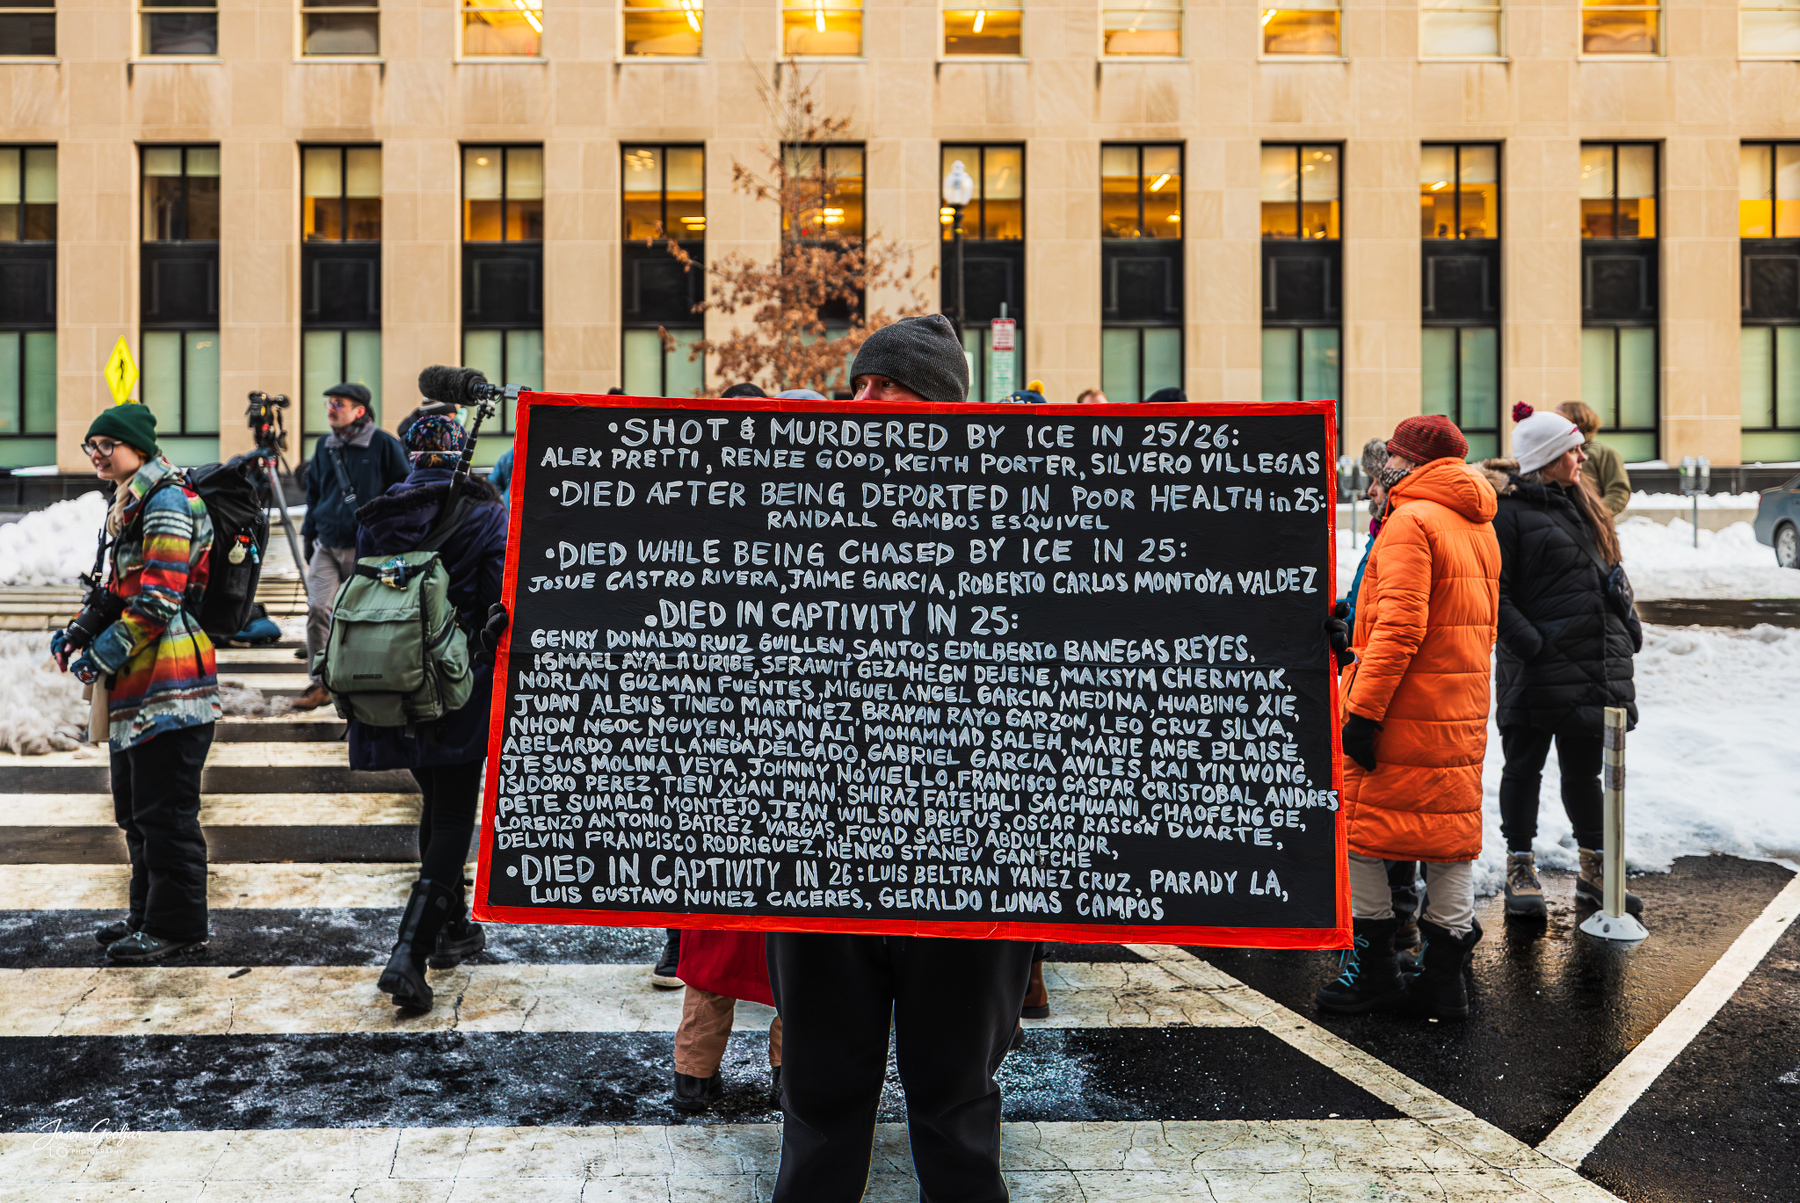 •SHOT & MURDERED BY ICE IN 25/26:
ALEX PRETTI, RENEE GOOD, KEITH PORTER, SILVERO VILLEGAS
•DIED AFTER BEING DEPORTED IN POOR HEALTH in 25:
RANDALL GAMBOS ESQUIVEL
•DIED WHILE BEING CHASED BY ICE IN 25:
JOSUE CASTRO RIVERA, JAIME GARCIA, ROBERTO CARLOS MONTOYA VALDEZ
•DIED IN CAPTIVITY IN 25:
GENRY DONALDO RUIZ GUILLEN, SANTOS EDILBERTO BANEGAS REYES,
ISMAEL AYALA URIBE, SERAWIT GEZAHEGN DEJENE, MAKSYM CHERNYAK,
NORLAN GUZMAN FUENTES, MIGUEL ANGEL GARCIA MEDINA, HUABING XIE,
JUAN ALEXIS TINEO MARTINEZ, BRAYAN RAYO GARZON, LEO CRUZ SILVA,
NHON NGOC NGUYEN, HASAN ALI MOHAMMAD SALEH, MARIE ANGE BLAISE,
ABELARDO AVELLANEDA DELGADO, GABRIEL GARCIA AVILES, KAI YIN WONG,
JESUS MOLINA VEYA, JOHNNY NOVIELLO, FRANCISCO GASPAR CRISTOBAL ANDRES
ISIDORO PEREZ, TIEN XUAN PHAN, SHIRAZ FATEHALI SACHWANI, CHAOFENG GE,
PETE SUMALO MONTEJO, JEAN WILSON BRUTUS, OSCAR RASCON DUARTE,
LORENZO ANTONIO BATREZ VARGAS, FOUAD SAEED ABDULKADIR,
DELVIN FRANCISCO RODRIGUEZ, NENKO STANEV GANTCHE,
•DIED IN CAPTIVITY IN 26: LUIS BELTRAN YANEZ CRUZ, PARADY LA,
LUIS GUSTAVO NUNEZ CACERES, GERALDO LUNAS CAMPOS
Jason Gooljar
PHOTOGRAPHY